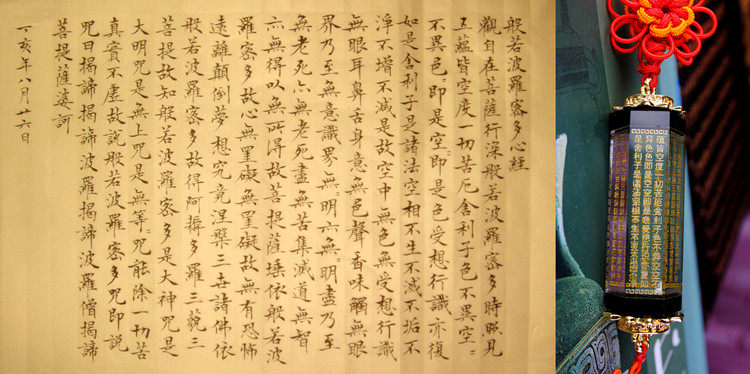 般若波羅密多心經
觀自在菩薩行深般若波羅密多時照見
五蘊皆空度一切苦厄舍利子色不異空〻
不異色〻即是空〻即是色受想行識亦復
如是舍利子是諸法空相不生不滅不垢不
淨不增不減是故空中無色無受想行識
無眼耳鼻舌身意無色聲香味觸無眼
界乃至無意識界無〻明亦無〻明盡乃至
無老死亦無老死盡無苦集滅道無智
亦無得以無所得故菩提薩埵依般若波
羅密多故心無罣礙無罣礙故無有恐怖
遠離顛倒夢想究竟涅槃三世諸佛依
般若波羅密多故得阿耨多羅三藐三
菩提故知般若波羅密多是大神咒是
大明咒是無上咒是無等〻咒能除一切苦
真實不虛故說般若波羅密多咒即說
咒曰揭諦揭諦波羅揭諦波羅僧揭諦
菩提薩婆訶
丁亥年八月廿六日
蘊皆空度一切苦厄舍利子色不異空空不
異色色即是空空即是色受想行識亦復如
是舍利子是諸法空相不生不滅不垢不